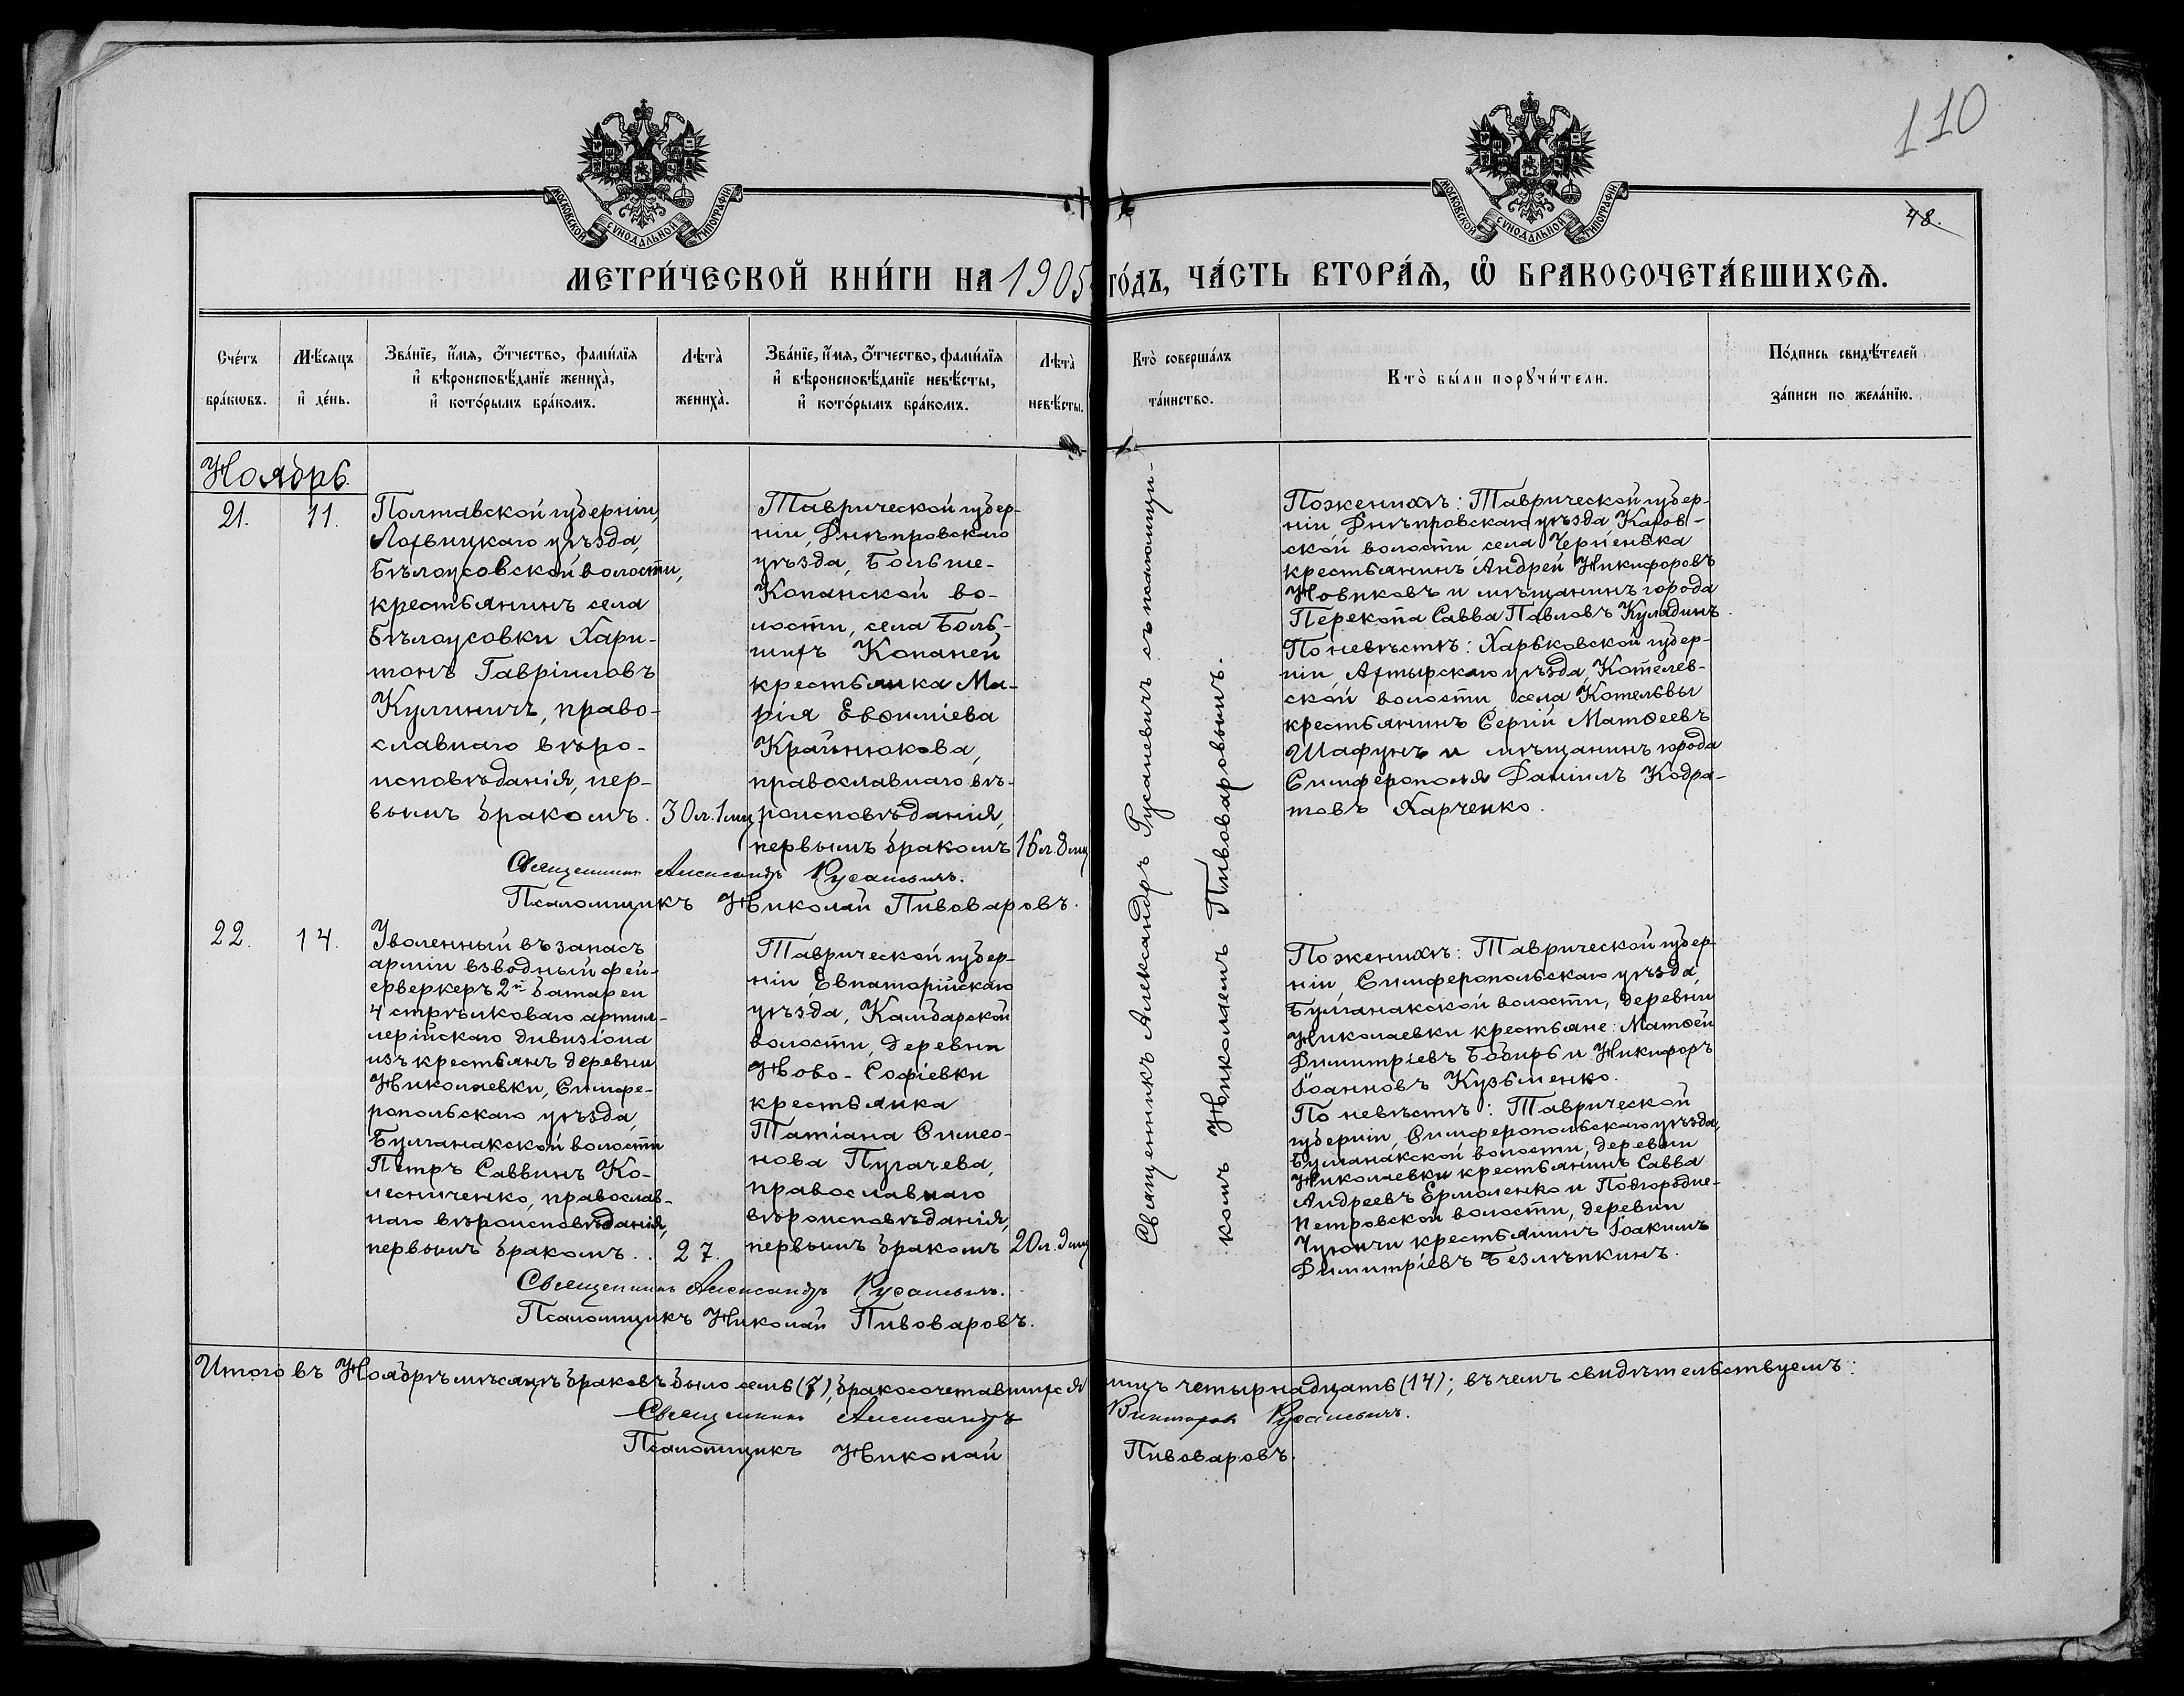 110
48.
МОСКОВСКОЙ СѴНОДАЛЬНОЙ ТИПОГРАФІИ
МОСКОВСКОЙ СѴНОДАЛЬНОЙ ТИПОГРАФІИ
МЕТРИ́ЧЕСКОЙ КНИ́ГИ НА 1905 ГО́ДЪ, ЧА́СТЬ ВТОРА́Ѧ, Ѽ БРАКОСОЧЕТА́ВШИХСѦ.
Сче́тъ
бра́кѡвъ.
Мѣ́сяцъ
и҆ де́нь.
Зва́нїе, и҆́мя, ѻ҆́тчество, фами́лїя
и҆ вѣроисповѣ́данїе жениха̀,
и҆ кото́рымъ бра́комъ.
Лѣта̀
жениха̀.
Зва́нїе, и҆́мя, ѻ҆́тчество, фами́лїя
и҆ вѣроисповѣ́данїе невѣ́сты,
и҆ кото́рымъ бра́комъ.
Лѣта̀
невѣ́сты.
Кто̀ соверша́лъ
та́инство.
Кто̀ бы́ли порꙋчи́тели.
По́дпись свидѣ́телей
за́писи по жела́нїю.
Ноябрь.
21.
11.
Полтавской губерніи,
Лохвицкаго уѣзда,
Бѣлоусовской волости,
крестьянинъ села
Бѣлоусовки Хари-
тонъ Гавріиловъ
Кулиничъ, право-
славнаго вѣро-
исповѣданія, пер-
вымъ бракомъ.
30 л. 1 мц
Таврической губер-
ніи, Днѣпровскаго
уѣзда, Больше-
Копанской во-
лости, села Боль-
шихъ Копаней
крестьянка Ма-
рія Евѳиміева
Крайнюкова,
православнаго вѣ-
роисповѣданія,
первымъ бракомъ
16 л. 8 мц
Священникъ Александръ Русаневичъ.
Псаломщикъ Николай Пивоваровъ.
Священникъ Александръ Русаневичъ съ псаломщи-
комъ Николаемъ Пивоваровымъ.
По женихѣ: Таврической губер-
ніи, Днѣпровскаго уѣзда, Кахов-
ской волости, села Черненька
крестьянинъ Андрей Никифоровъ
Новиковъ и мѣщанинъ города
Перекопа Савва Павловъ Кулядинъ.
По невѣстѣ: Харьковской губер-
ніи, Ахтырскаго уѣзда, Котелев-
ской волости села Котельвы
крестьянинъ Сергій Матѳеевъ
Шафунъ и мѣщанинъ города
Симферополя Даніилъ Кодра-
товъ Харченко.
22.
14.
Уволенный въ запасъ
арміи взводный фей-
ерверкеръ 2й батареи
4 стрѣлковаго артил-
лерійскаго дивизіона
изъ крестьянъ деревни
Николаевки, Симфе-
ропольскаго уѣзда,
Булганакской волости
Петръ Саввинъ Ко-
лесниченко, православ-
наго вѣроисповѣданія,
первымъ бракомъ.
27.
Таврической губер-
ніи, Евпаторійскаго
уѣзда, Камбарской
волости, деревни
Ново-Софіевки
крестьянка
Татіана Симео-
нова Пугачева,
православнаго
вѣроисповѣданія,
первымъ бракомъ
20 л. 9 мц
Священникъ Александръ Русаневичъ.
Псаломщикъ Николай Пивоваровъ.
По женихѣ: Таврической губер-
ніи, Симферопольскаго уѣзда,
Булганакской волости, деревни
Николаевки крестьяне: Матѳей
Димитріевъ Бабирь и Никифоръ
Іоанновъ Кузьменко.
По невѣстѣ: Таврической
губерніи, Симферопольскаго уѣзда,
Булганакской волости, деревни
Николаевки крестьянинъ Савва
Андреевъ Ермоленко и Подгородне-
Петровской волости, деревни
крестьянинъ Іоакимъ
Димитріевъ Безлѣпкинъ.
Итого въ Ноябрѣ мѣсяцѣ браковъ было семь (7), бракосочетавшихся лицъ четырнадцать (14); въ чемъ свидѣтельствуемъ:
Священникъ Александръ Викторовъ Русаневичъ.
Псаломщикъ Николай Пивоваровъ.